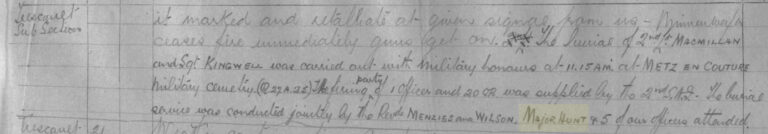 Trescault it marked and retalliate at given signal from us - Minnenwerfer
Sub Section ceases fire immediately guns get on. The burial of 2nd Lt MACMILLAN
and Sgt KINGWELL was carried out with military honours at 11.15AM at METZ EN COUTURE
Military cemetery (Q27A.25) The firing party of 1 officer and 20 OR was supplied by the 2nd The burial
service was conducted jointly by the Revds MENZIES and WILSON. MAJOR HUNT & 5 of our officers attended.
Trescault 21